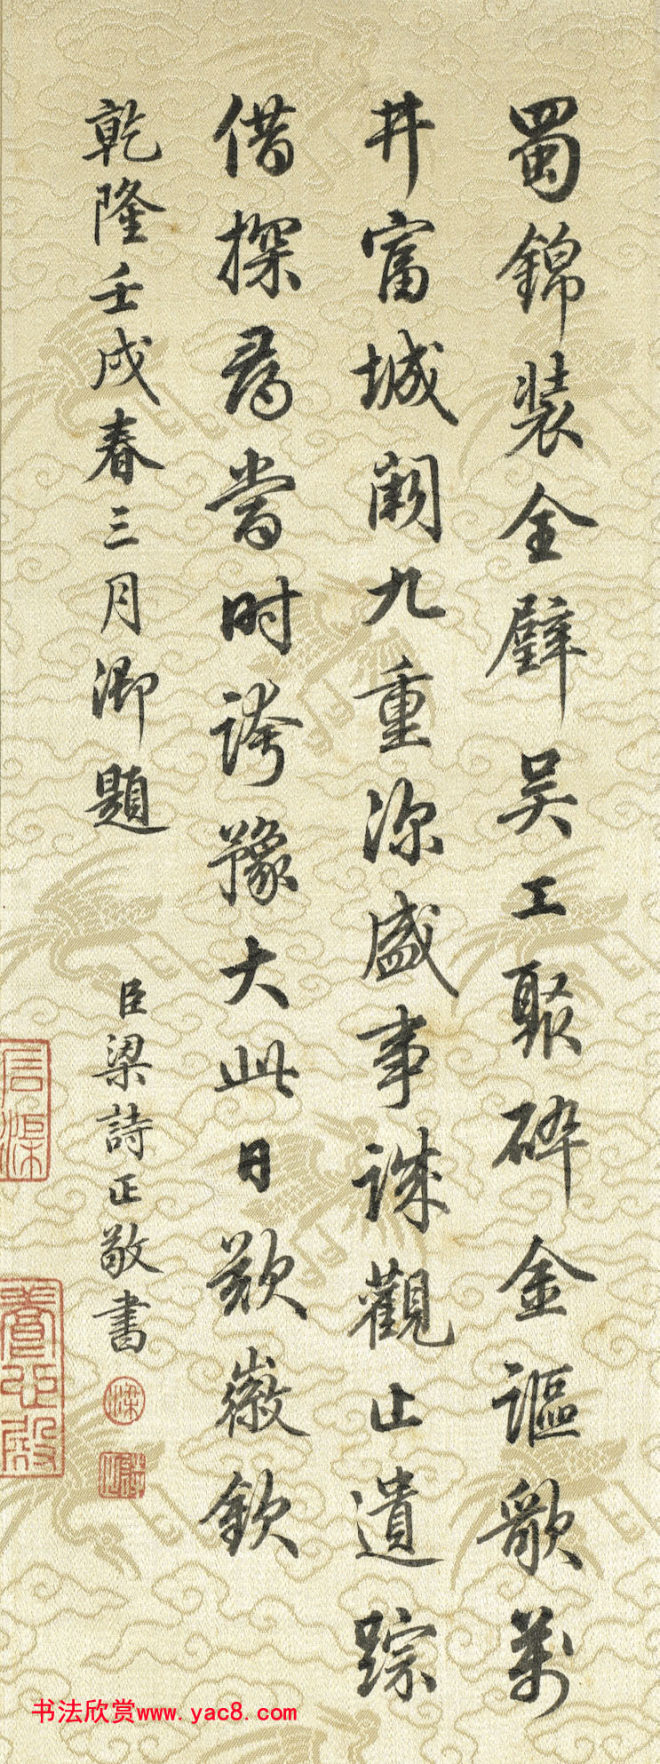 蜀錦装全壁吴工聚碎金謳歌萬
井富城闕九重深盛事誠觀止遺踪
借探尋當時誇豫大此日歎徽欽
乾隆壬戌春三月御題
臣梁詩正敬書
養心殿
书法欣赏www.yac8.com